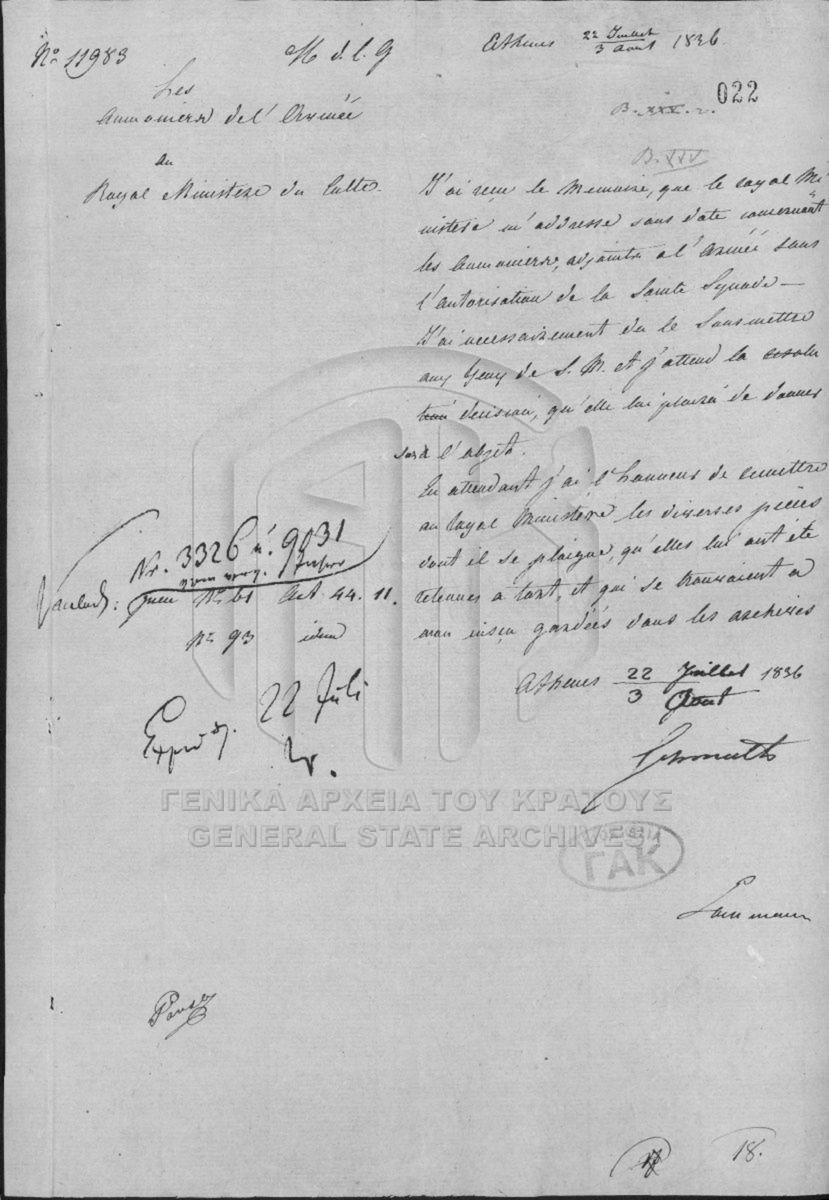 No 11983
M d. l. G
Athenes 22 Juillet / 3 Aout 1836
022
B. XXX. 2.
B. XXV
Les
Aumoniers de l'Armée
au
Royal Ministere du Culte.
J'ai reçu le Memoire, que le royal Mi
nistere m'addresse sans date concernant
les Aumoniers, adjoints a l'Armée sans
l'autorisation de la Sainte Synode —
J'ai necessairement du le Soumettre
aux Yeux de S. M. et j'attend la resolu
tion decision, qu'elle lui plaira de donner
sur l'objet.
En attendant j'ai l'honneur de remettre
au royal Ministére les diverses pièces
dont il se plaigne, qu'elles lui ont été
retenues a tort, et qui se trouvaient a
mon insçu gardées dans les archives
Athenes 22 Juillet / 3 Aout 1836
Schmaltz
Nr. 3326 u. 9031
No 61 Act. 44. 11.
No 93 idem
22 Juli
ΓΕΝΙΚΑ ΑΡΧΕΙΑ ΤΟΥ ΚΡΑΤΟΥΣ
GENERAL STATE ARCHIVES
ΓΑΚ
18.